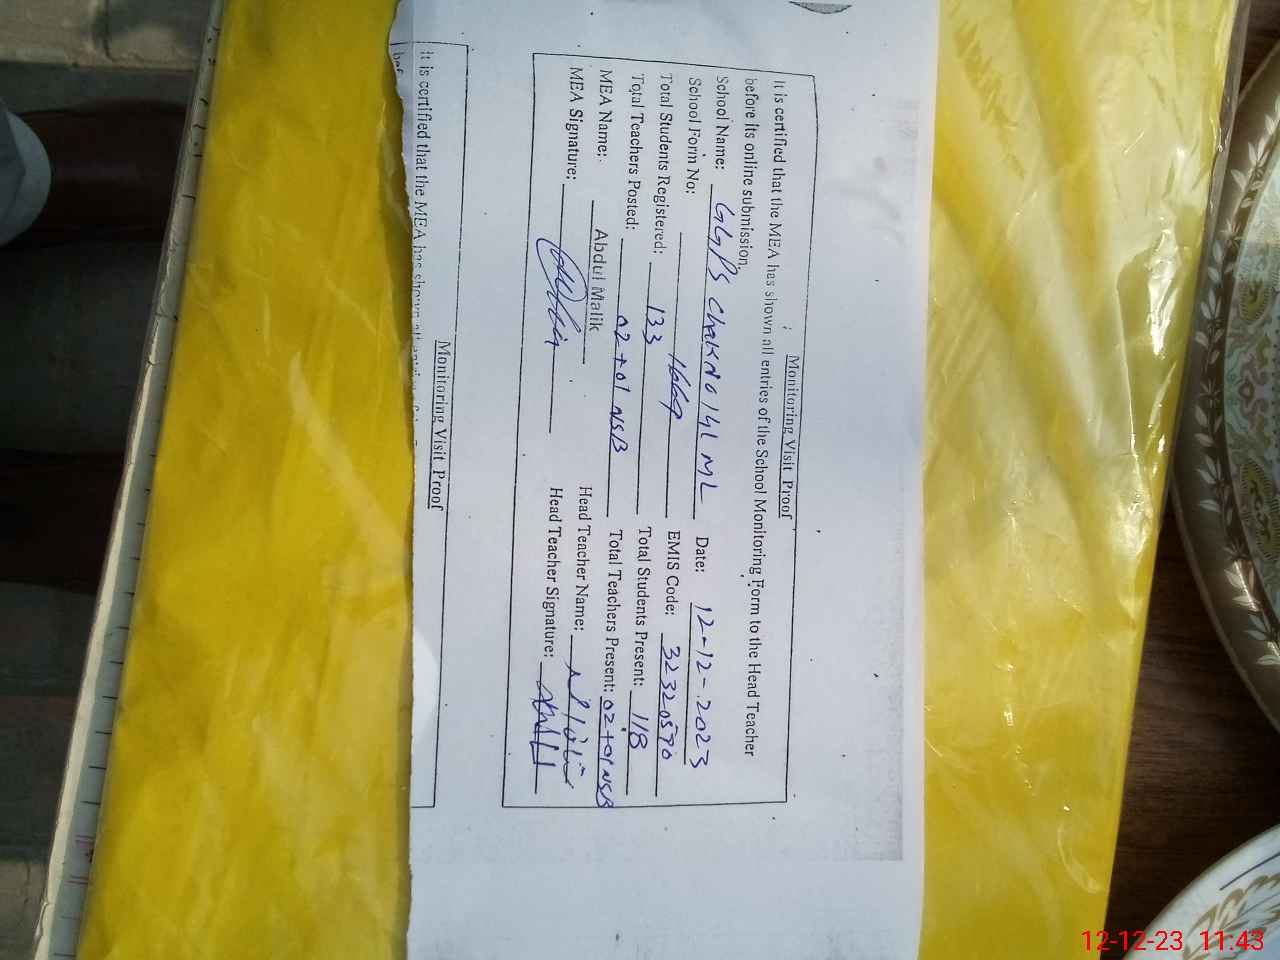 Monitoring Visit Proof
It is certified that the MEA has shown all entries of the School Monitoring Form to the Head Teacher
before its online submission.
School Name: GGPS Chak No 141 ML Date: 12-12-2023
School Form No: 1669 EMIS Code: 32320590
Total Students Registered: 133 Total Students Present: 118
Total Teachers Posted: 02+01 NSB Total Teachers Present: 02+01 NSB
MEA Name: Abdul Malik Head Teacher Name:
MEA Signature: Head Teacher Signature:
Monitoring Visit Proof
It is certified that the MEA has shown all
12-12-23 11:43